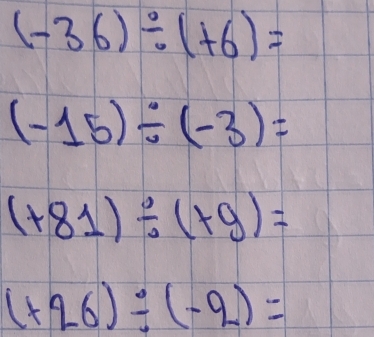 (-36) ÷ (+6) =
(-15) ÷ (-3) =
(+81) ÷ (+9) =
(+26) ÷ (-2) =